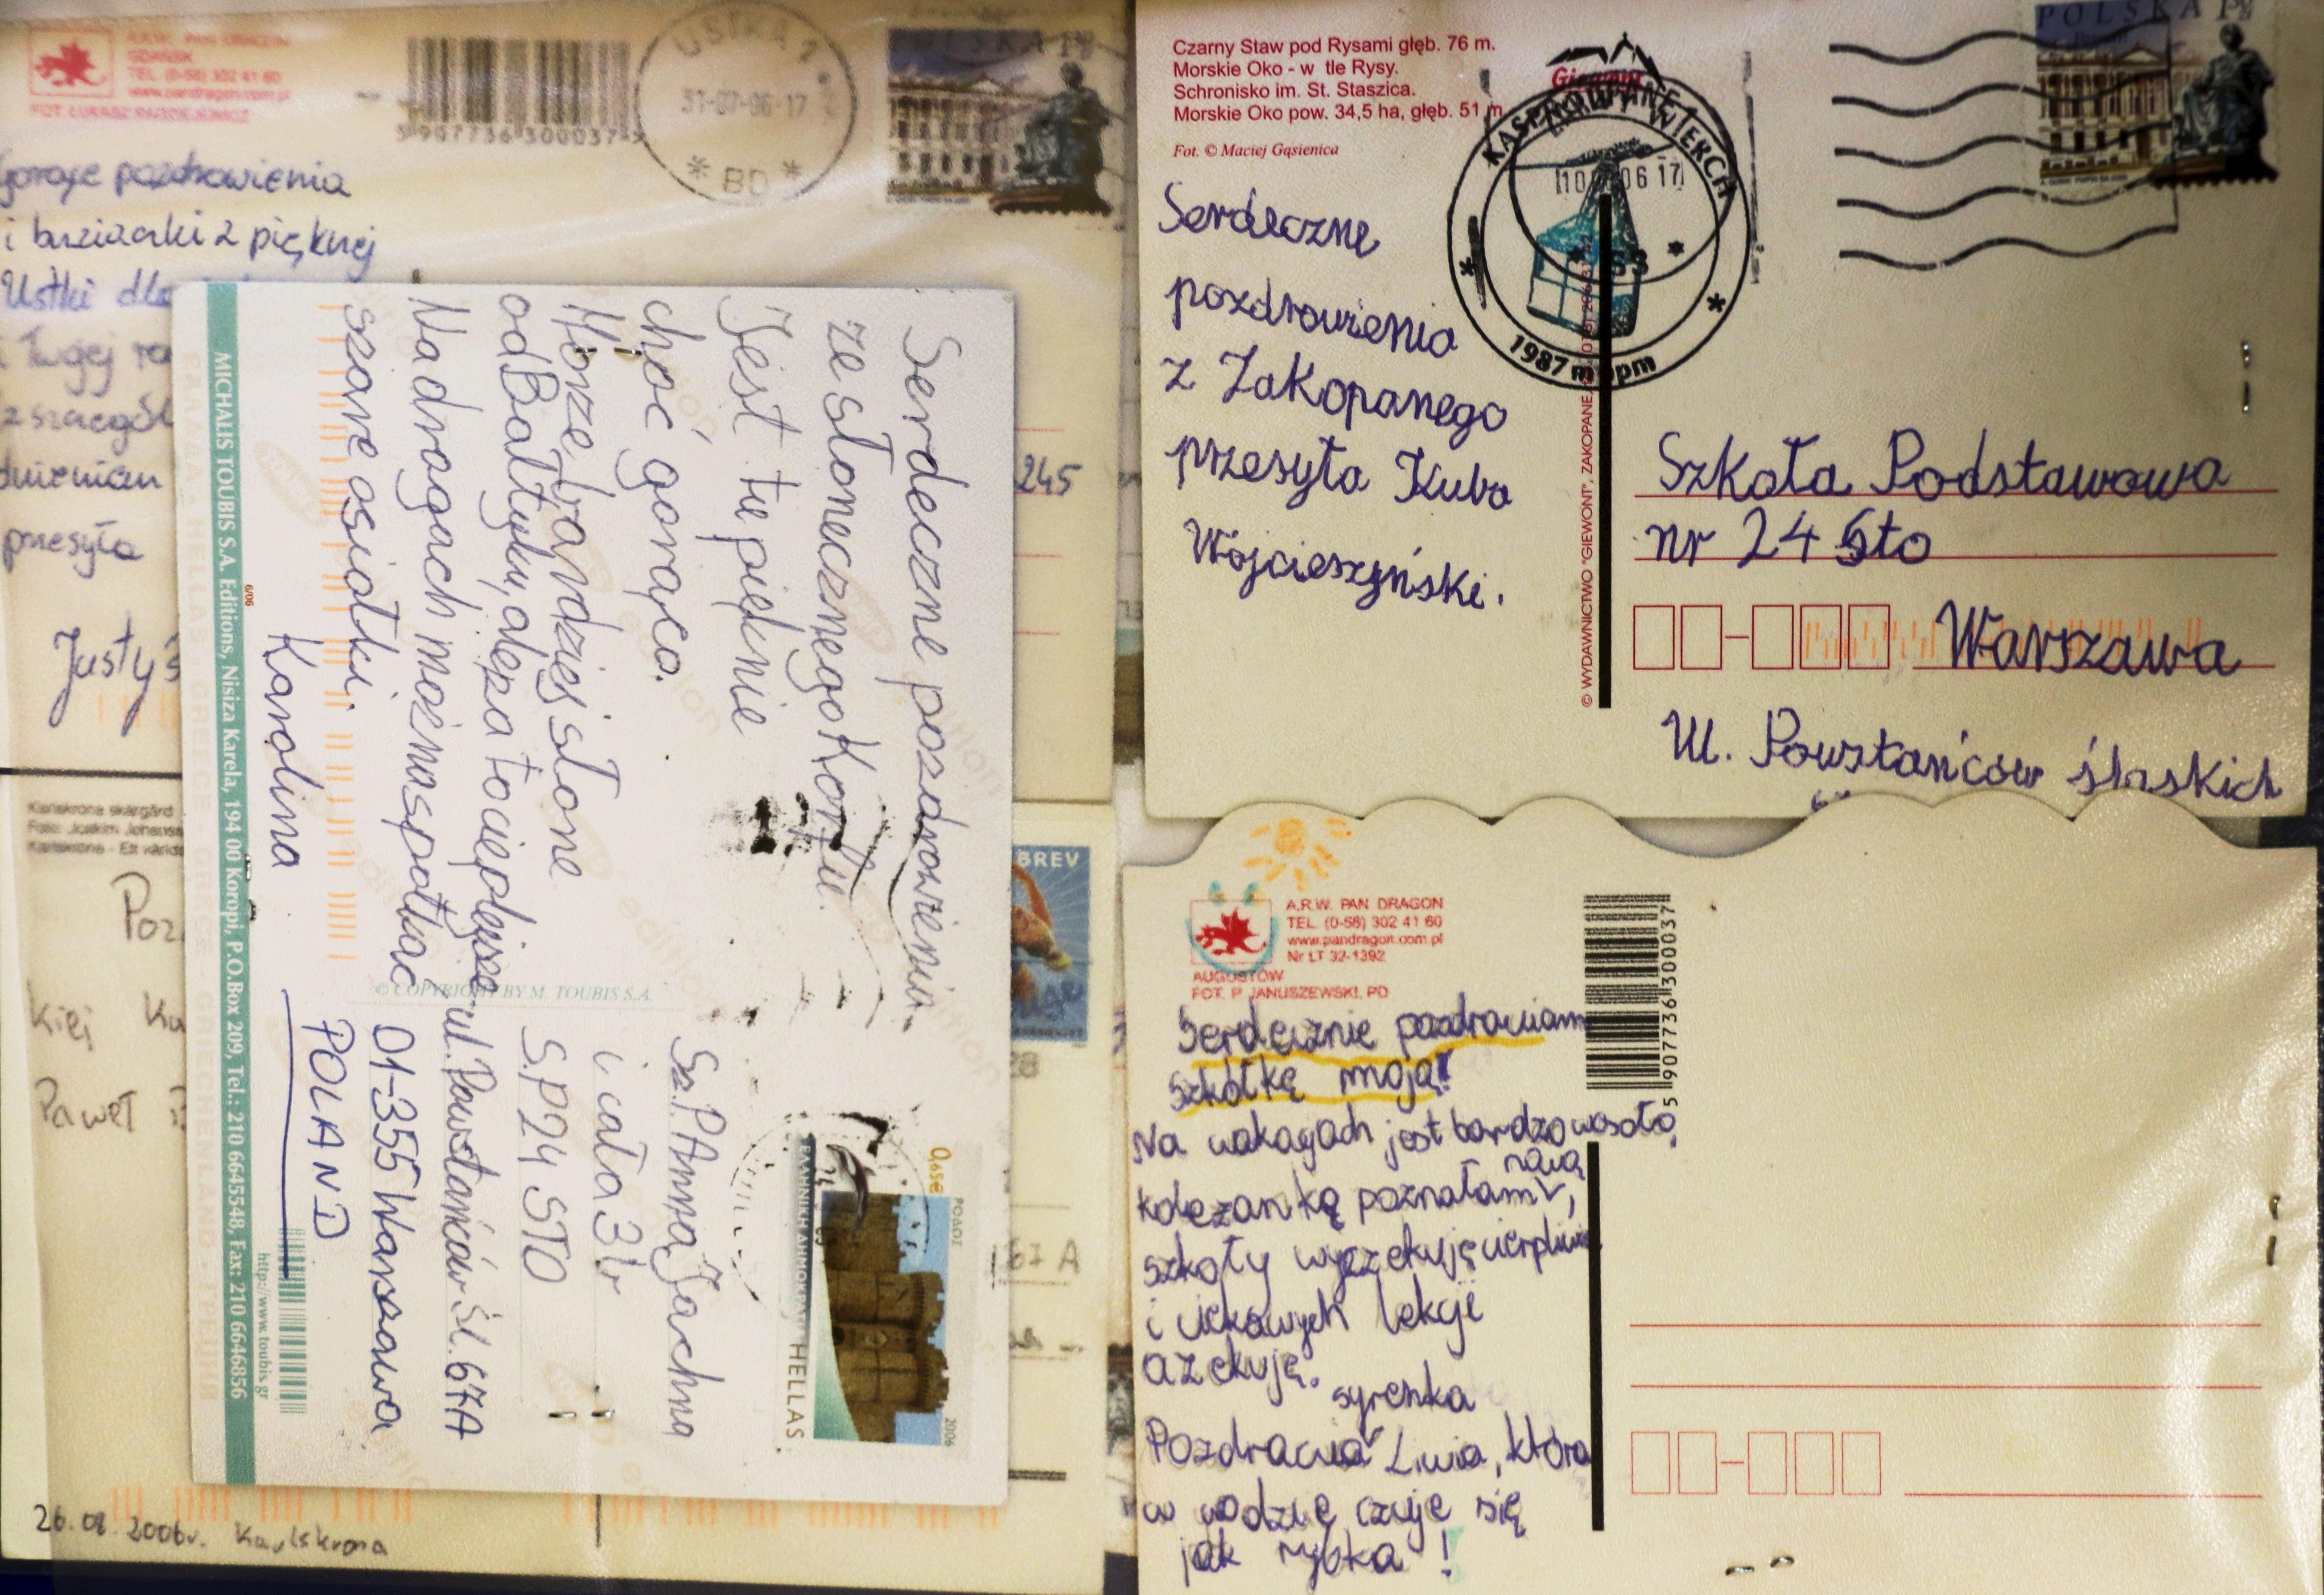 A.R.W. PAN DRAGON
GDAŃSK
TEL. (0-58) 302 41 60
www.pandragon.com.pl
5 907736 300037
USTKA 1
31-07-06-17
* BD *
POLSKA
pozdrowienia
i buziaczki z pięknej
Ustki dla
i Twojej
przesyła
Justy
245
Serdeczne pozdrowienia
ze słonecznego Korfu.
Jest tu pięknie
choć gorąco.
Morze bardziej słone
od Bałtyku, ale za to cieplejsze
Na drogach można spotkać
szare osiołki
Karolina
© COPYRIGHT BY M. TOUBIS S.A.
Sz.P. Anna Jachna
i cała 3b
S.P 24 STO
ul. Powstańców Śl. 67A
01-355 Warszawa
POLAND
0,65€
ΡΟΔΟΣ
2006
ΕΛΛΗΝΙΚΗ ΔΗΜΟΚΡΑΤΙΑ HELLAS
6/06
MICHALIS TOUBIS S.A. Editions, Nisiza Karela, 194 00 Koropi, P.O.Box 209, Tel.: 210 6645548, Fax: 210 6646856
http://www.toubis.gr
Karlskrona skärgård
BREV
Paweł
67 A
26.08.2006r. Karlskrona
Czarny Staw pod Rysami głęb. 76 m.
Morskie Oko - w tle Rysy.
Schronisko im. St. Staszica.
Morskie Oko pow. 34,5 ha, głęb. 51 m.
Fot. © Maciej Gąsienica
Giewont
KASPROWY WIERCH
ZAKOPANE 1
10 06 17
1987 m npm
POLSKA
Serdeczne
pozdrowienia
z Zakopanego
przesyła Kuba
Wojcieszyński.
© WYDAWNICTWO "GIEWONT", ZAKOPANE,
Szkoła Podstawowa
nr 24 Sto
Warszawa
Ul. Powstańców śląskich
A.R.W. PAN DRAGON
TEL. (0-58) 302 41 60
www.pandragon.com.pl
Nr LT 32-1392
AUGUSTÓW
FOT. P. JANUSZEWSKI, PD
5 907736 300037
Serdecznie pozdrawiam
szkółkę moją!
Na wakacjach jest bardzo wesoło,
nową
koleżankę poznałam,
szkoły wyczekuję cierpliwie
i ciekawych lekcji
oczekuję.
syrenka
Pozdrawia Liwia, która
w wodzie czuje się
jak rybka!